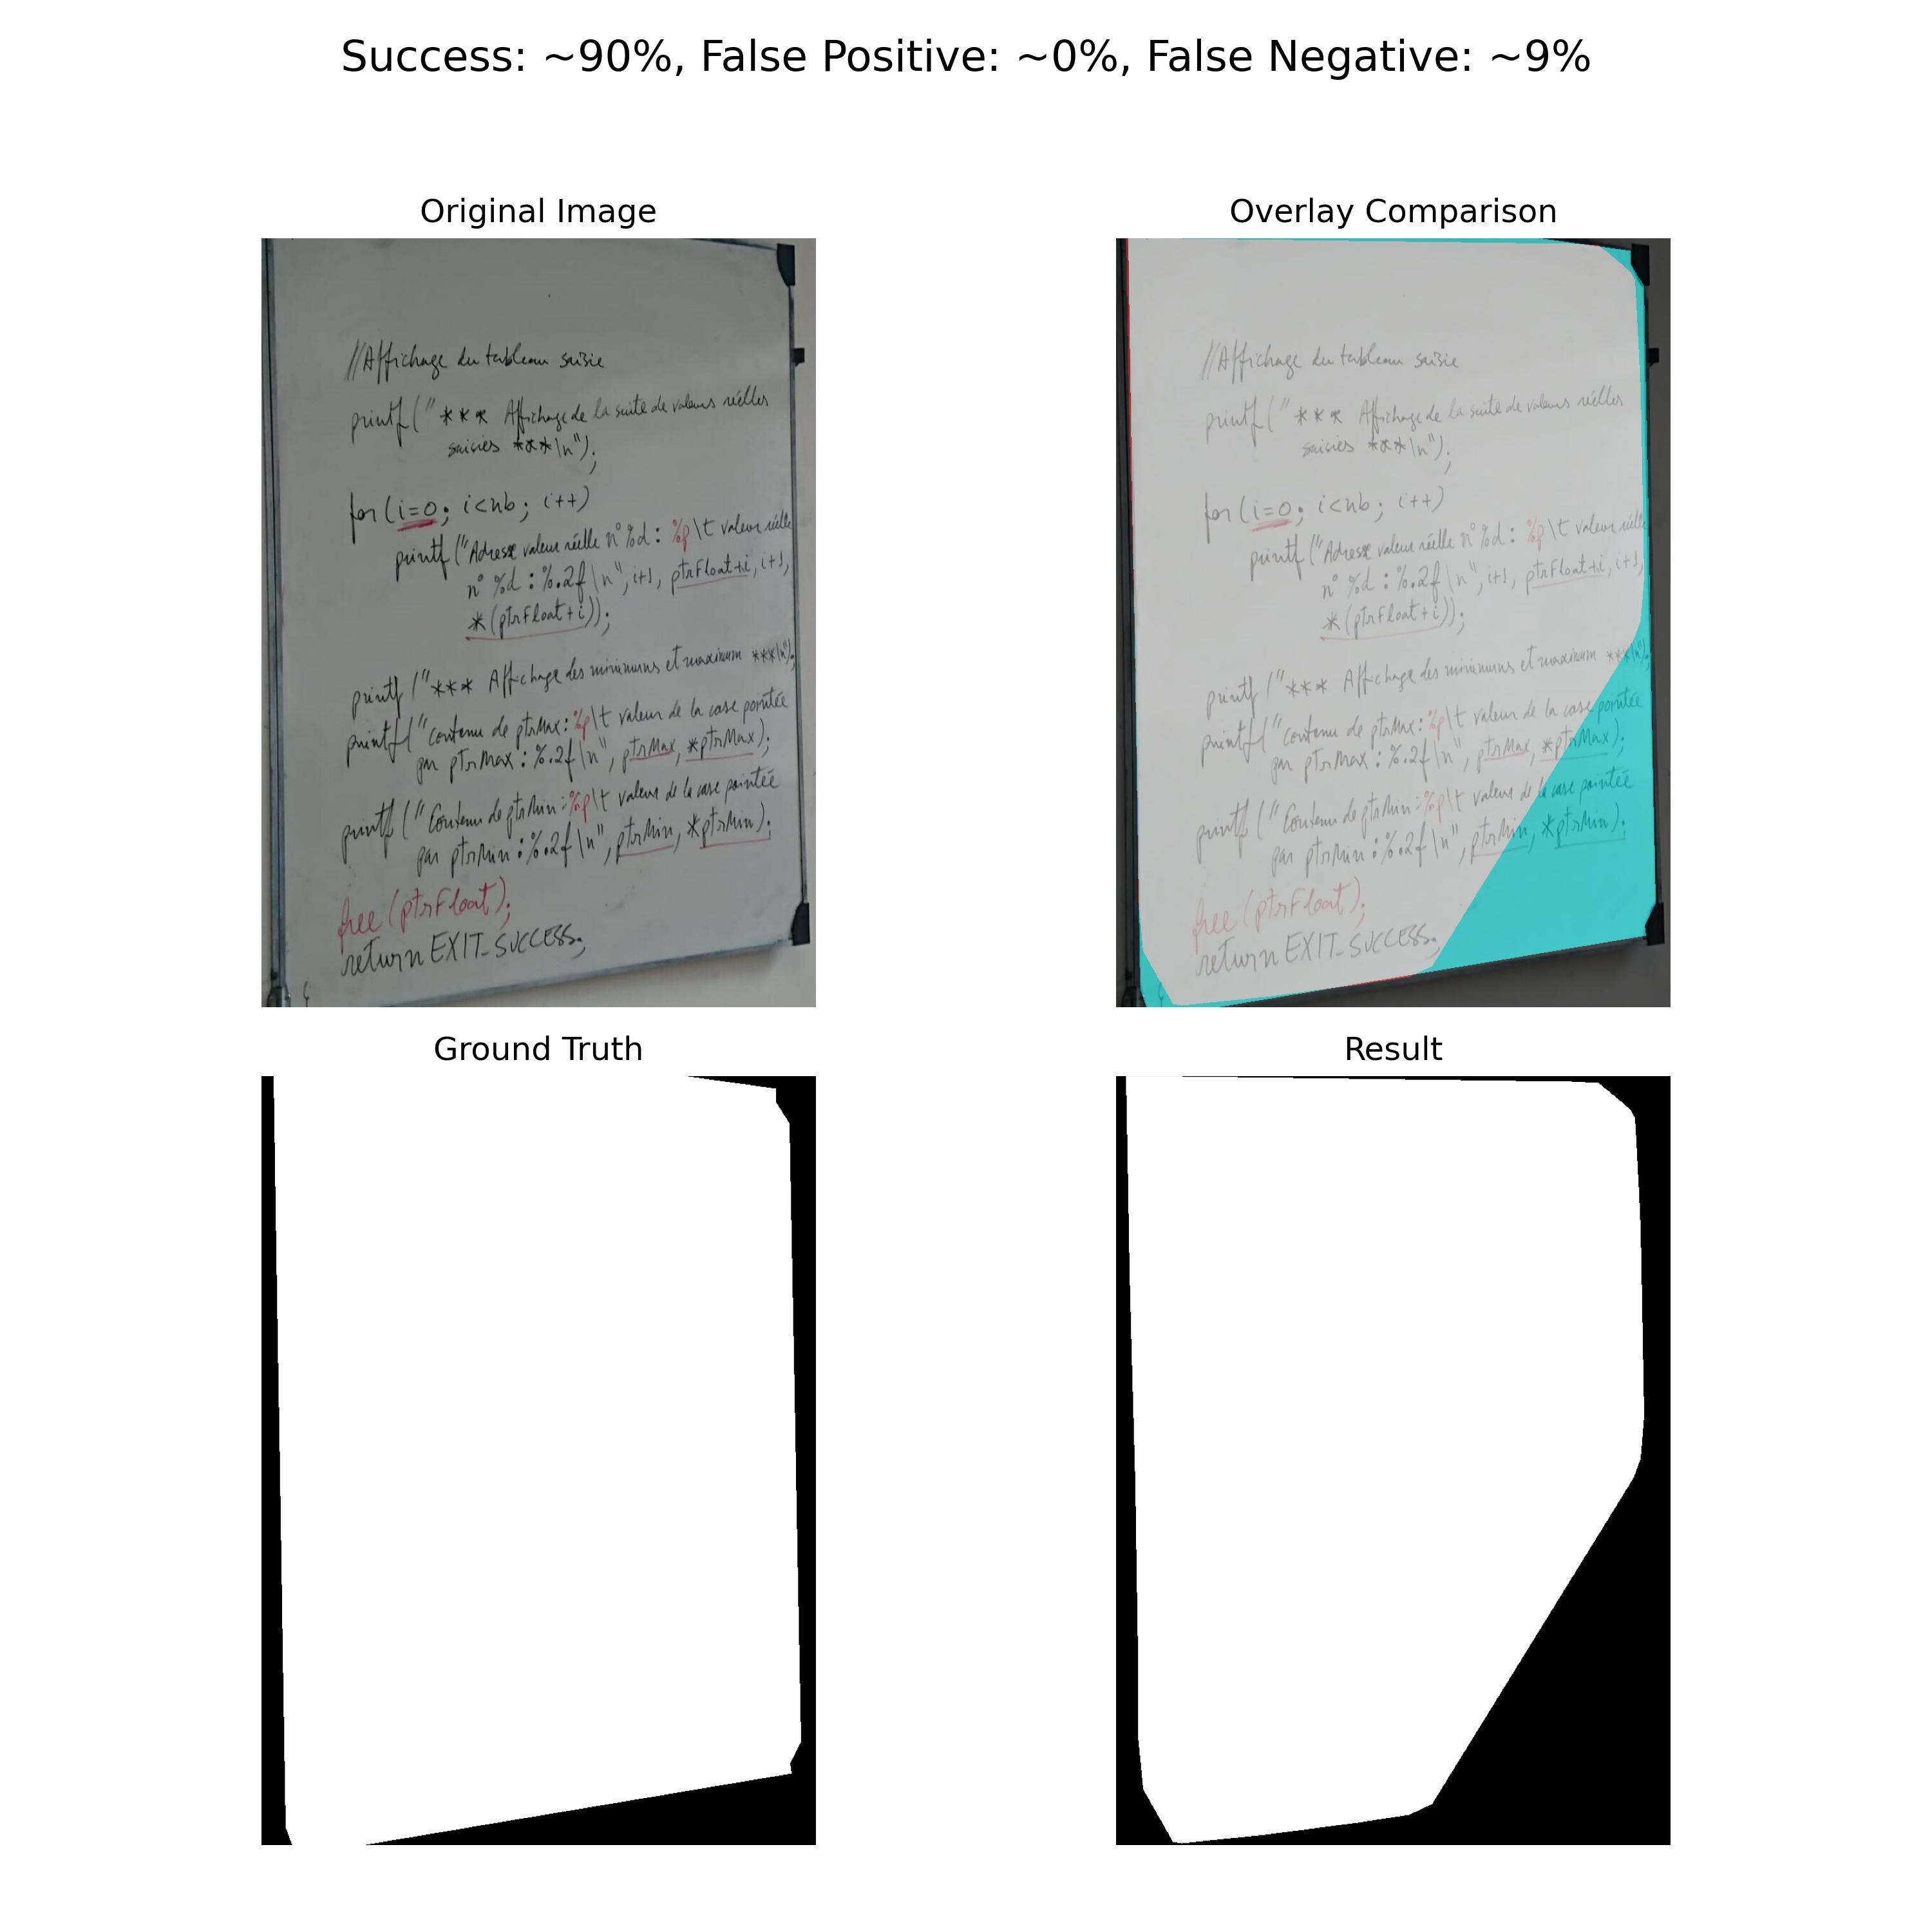 Success: ~90%, False Positive: ~0%, False Negative: ~9%
Original Image
//Affichage du tableau saisie
printf("*** Affichage de la suite de valeurs réelles
saisies ***\n");
for(i=0; i<nb; i++)
printf("Adresse valeur réelle n°%d: %p\t valeur réelle
n° %d : %.2f\n", i+1, ptrFloat+i, i+1,
*(ptrFloat+i));
printf("*** Affichage des minimums et maximum ***\n");
printf("Contenu de ptrMax: %p\t valeur de la case pointée
par ptrMax : %.2f\n", ptrMax, *ptrMax);
printf("Contenu de ptrMin: %p\t valeur de la case pointée
par ptrMin : %.2f\n", ptrMin, *ptrMin);
free(ptrFloat);
return EXIT_SUCCESS;
Overlay Comparison
//Affichage du tableau saisie
printf("*** Affichage de la suite de valeurs réelles
saisies ***\n");
for(i=0; i<nb; i++)
printf("Adresse valeur réelle n°%d: %p\t valeur réelle
n° %d : %.2f\n", i+1, ptrFloat+i, i+1,
*(ptrFloat+i));
printf("*** Affichage des minimums et maximum ***\n");
printf("Contenu de ptrMax: %p\t valeur de la case pointée
par ptrMax : %.2f\n", ptrMax, *ptrMax);
printf("Contenu de ptrMin: %p\t valeur de la case pointée
par ptrMin : %.2f\n", ptrMin, *ptrMin);
free(ptrFloat);
return EXIT_SUCCESS;
Ground Truth
Result